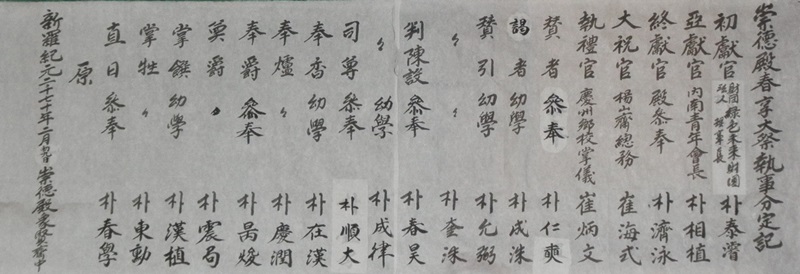 崇德殿春享大祭執事分定記
初獻官 財團法人 綠色未來財團 理事長 朴泰
亞獻官 內南靑年會長 朴相植
終獻官 殿參奉 朴濟泳
大祝官 楊山齋總務 崔海式
執禮官 慶州鄕校掌儀 崔炳文
贊者 參奉 朴仁奭
謁者 幼學 朴成洙
贊引 幼學 朴允弼
〃 〃 朴奎洙
判陳設 參奉 朴春昊
〃 幼學 朴成律
司尊 參奉 朴順大
奉香 幼學 朴在漢
奉爐 〃 朴慶潤
奉爵 參奉 朴昺煥
奠爵 〃 朴震局
掌饌 幼學 朴漢植
掌牲 〃 朴東勳
直日 參奉 朴春學
原
新羅紀元二千七十年二月 日 崇德殿參奉